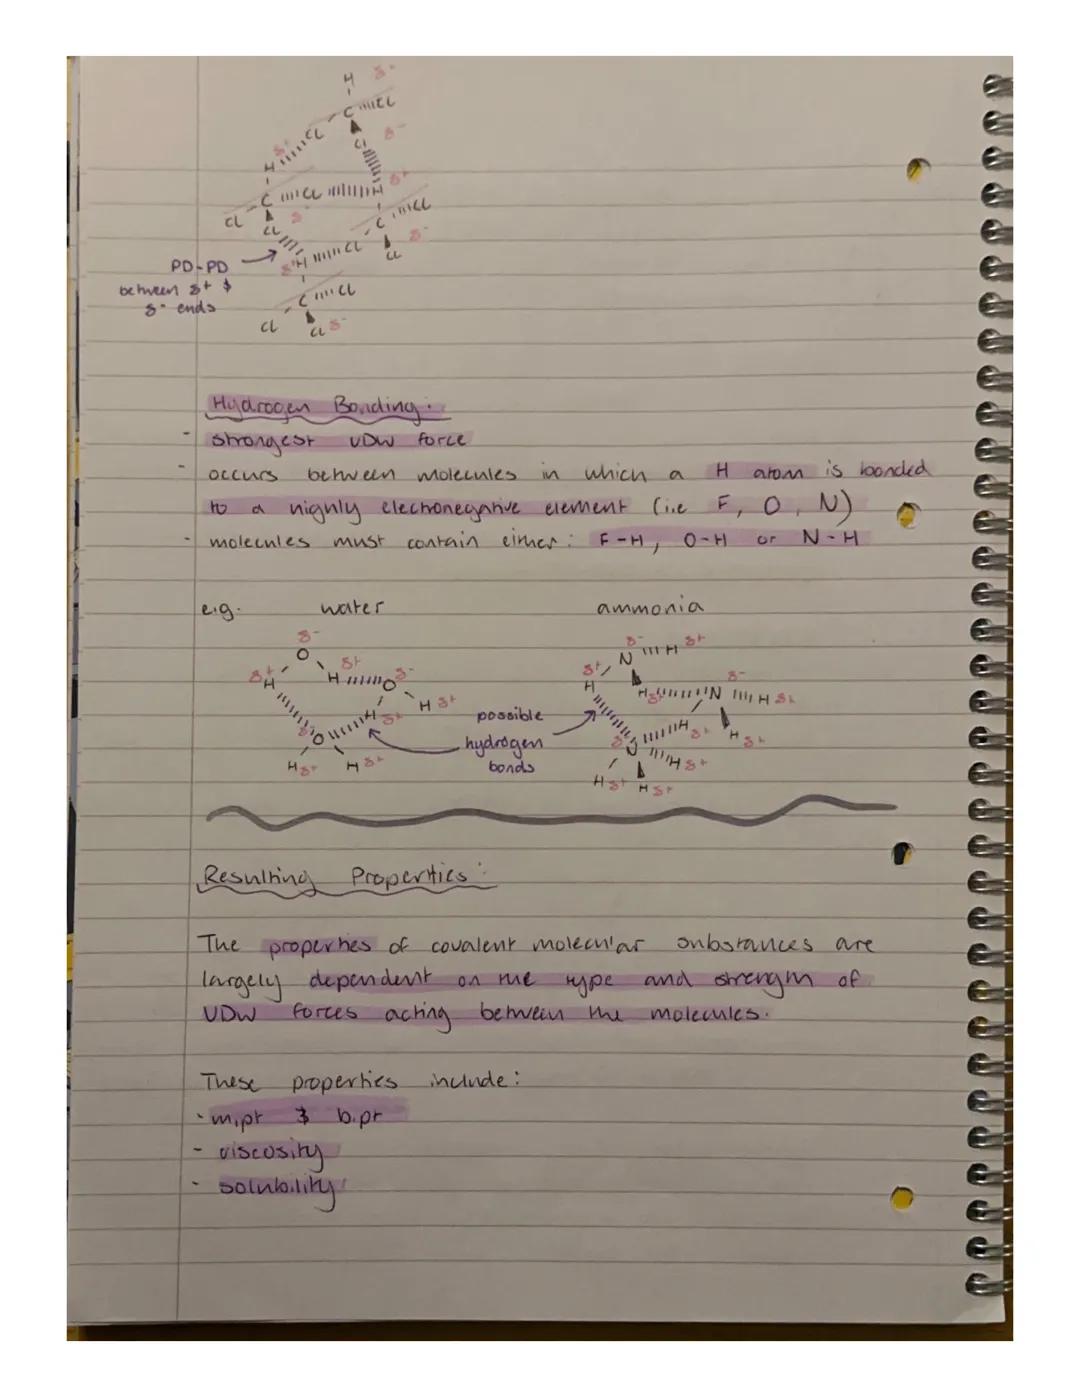 H δ-
C Cl
Cl
δ+ Cl δ-
H δ+
C Cl H
Cl δ- C Cl
Cl Cl
Cl δ-
PD-PD δ+H Cl Cl
between δ+ &
δ- ends
C Cl
Cl Cl δ-
Hydrogen Bonding:
- strongest VDW force
- occurs between molecules in which a H atom is bonded
to a highly electronegative element (i.e F, O, N)
- molecules must contain either: F-H, O-H or N-H
e.g. water ammonia
δ- δ- δ+
O N H
δ+ δ+ δ- δ+ δ-
H H O H H δ+ N H δ+
H δ+ H δ+
possible
hydrogen
bonds
δ- O H δ+ H δ+ H δ+
H δ+ H δ+ H δ+
H δ+ H δ+
Resulting Properties:
The properties of covalent molecular substances are
largely dependent on the type and strength of
VDW forces acting between the molecules.
These properties include:
- m.pt & b.pt
- viscosity
- solubility